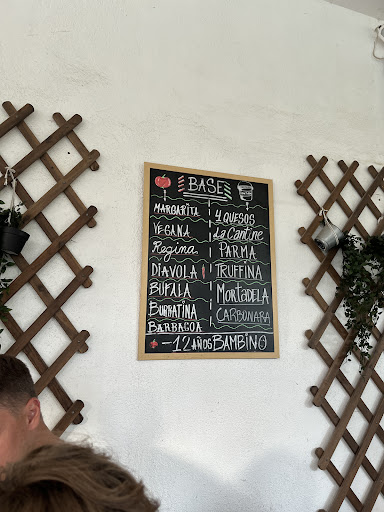 BASE
MARGARITA
VEGANA
Regina
DIAVOLA
BUFALA
BURRATINA
BARBACOA
4 QUESOS
La Cantine
PARMA
TRUFFINA
MORTADELA
CARBONARA
-12 AÑOS BAMBINO